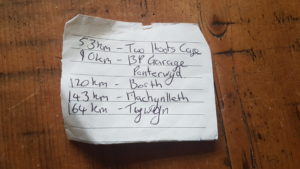 53km - Two Hoots Cafe
90km - BP Garage
Ponterwyd
120km - Borth
143km - Machynlleth
164km - Tywyn